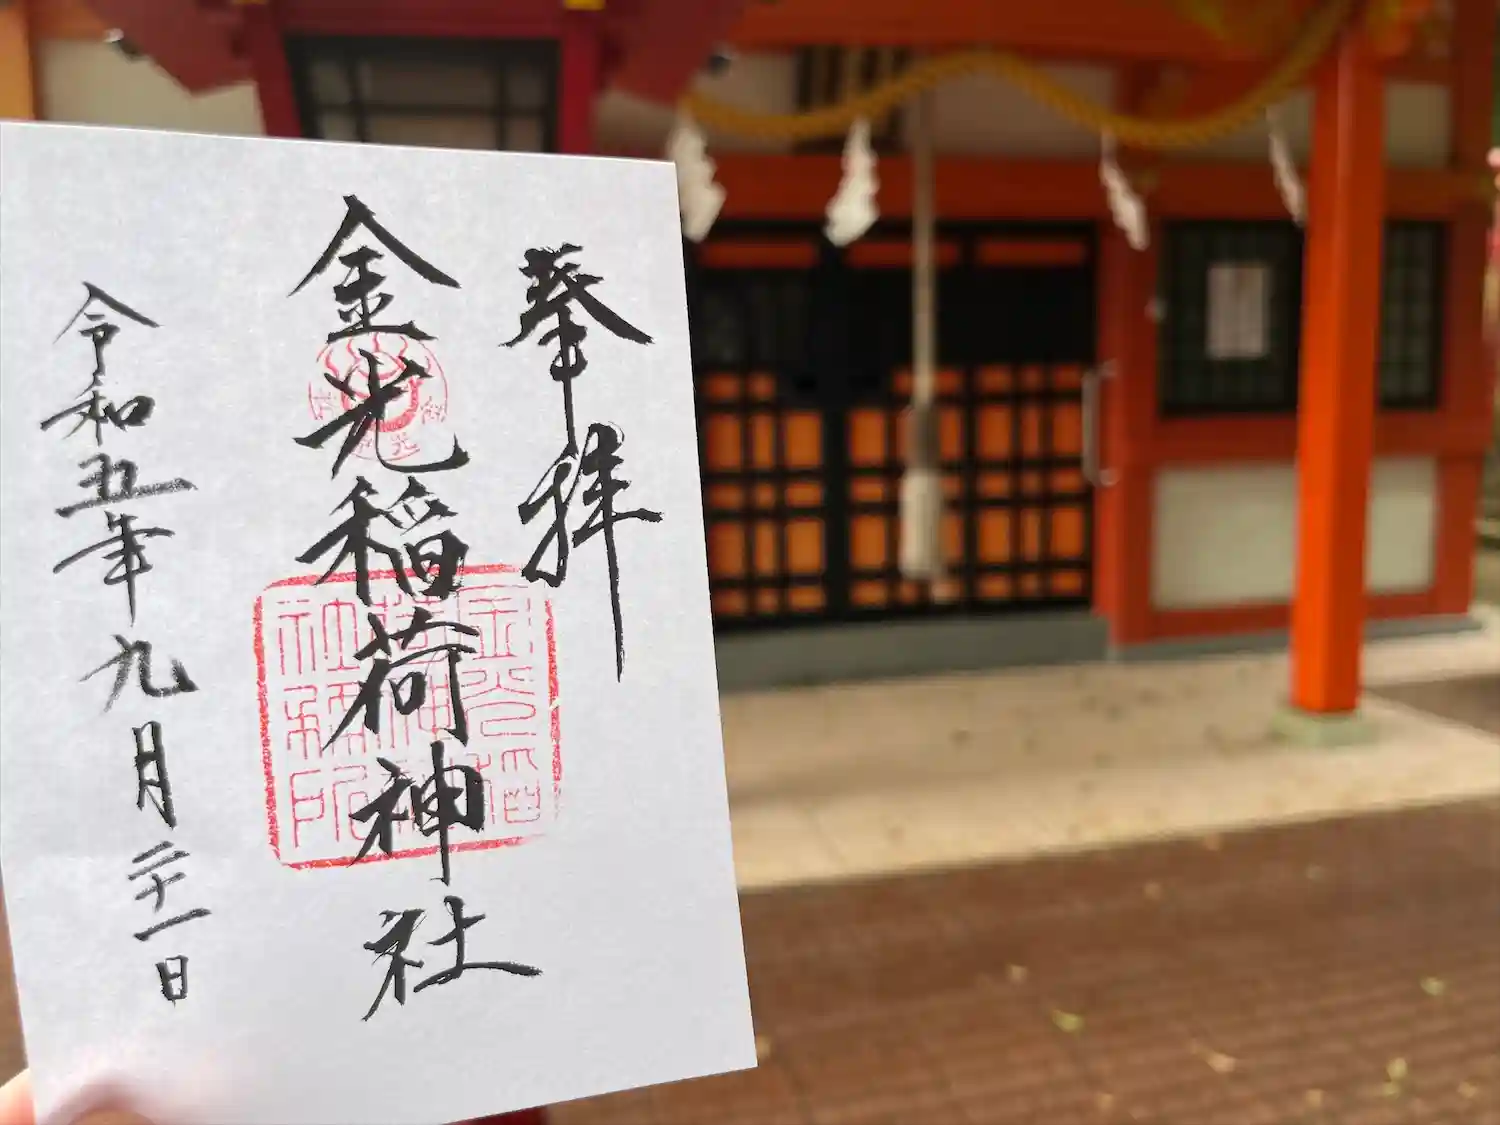 奉拝
金光稲荷神社
令和五年九月二十一日
金光稲
荷神社
社務所